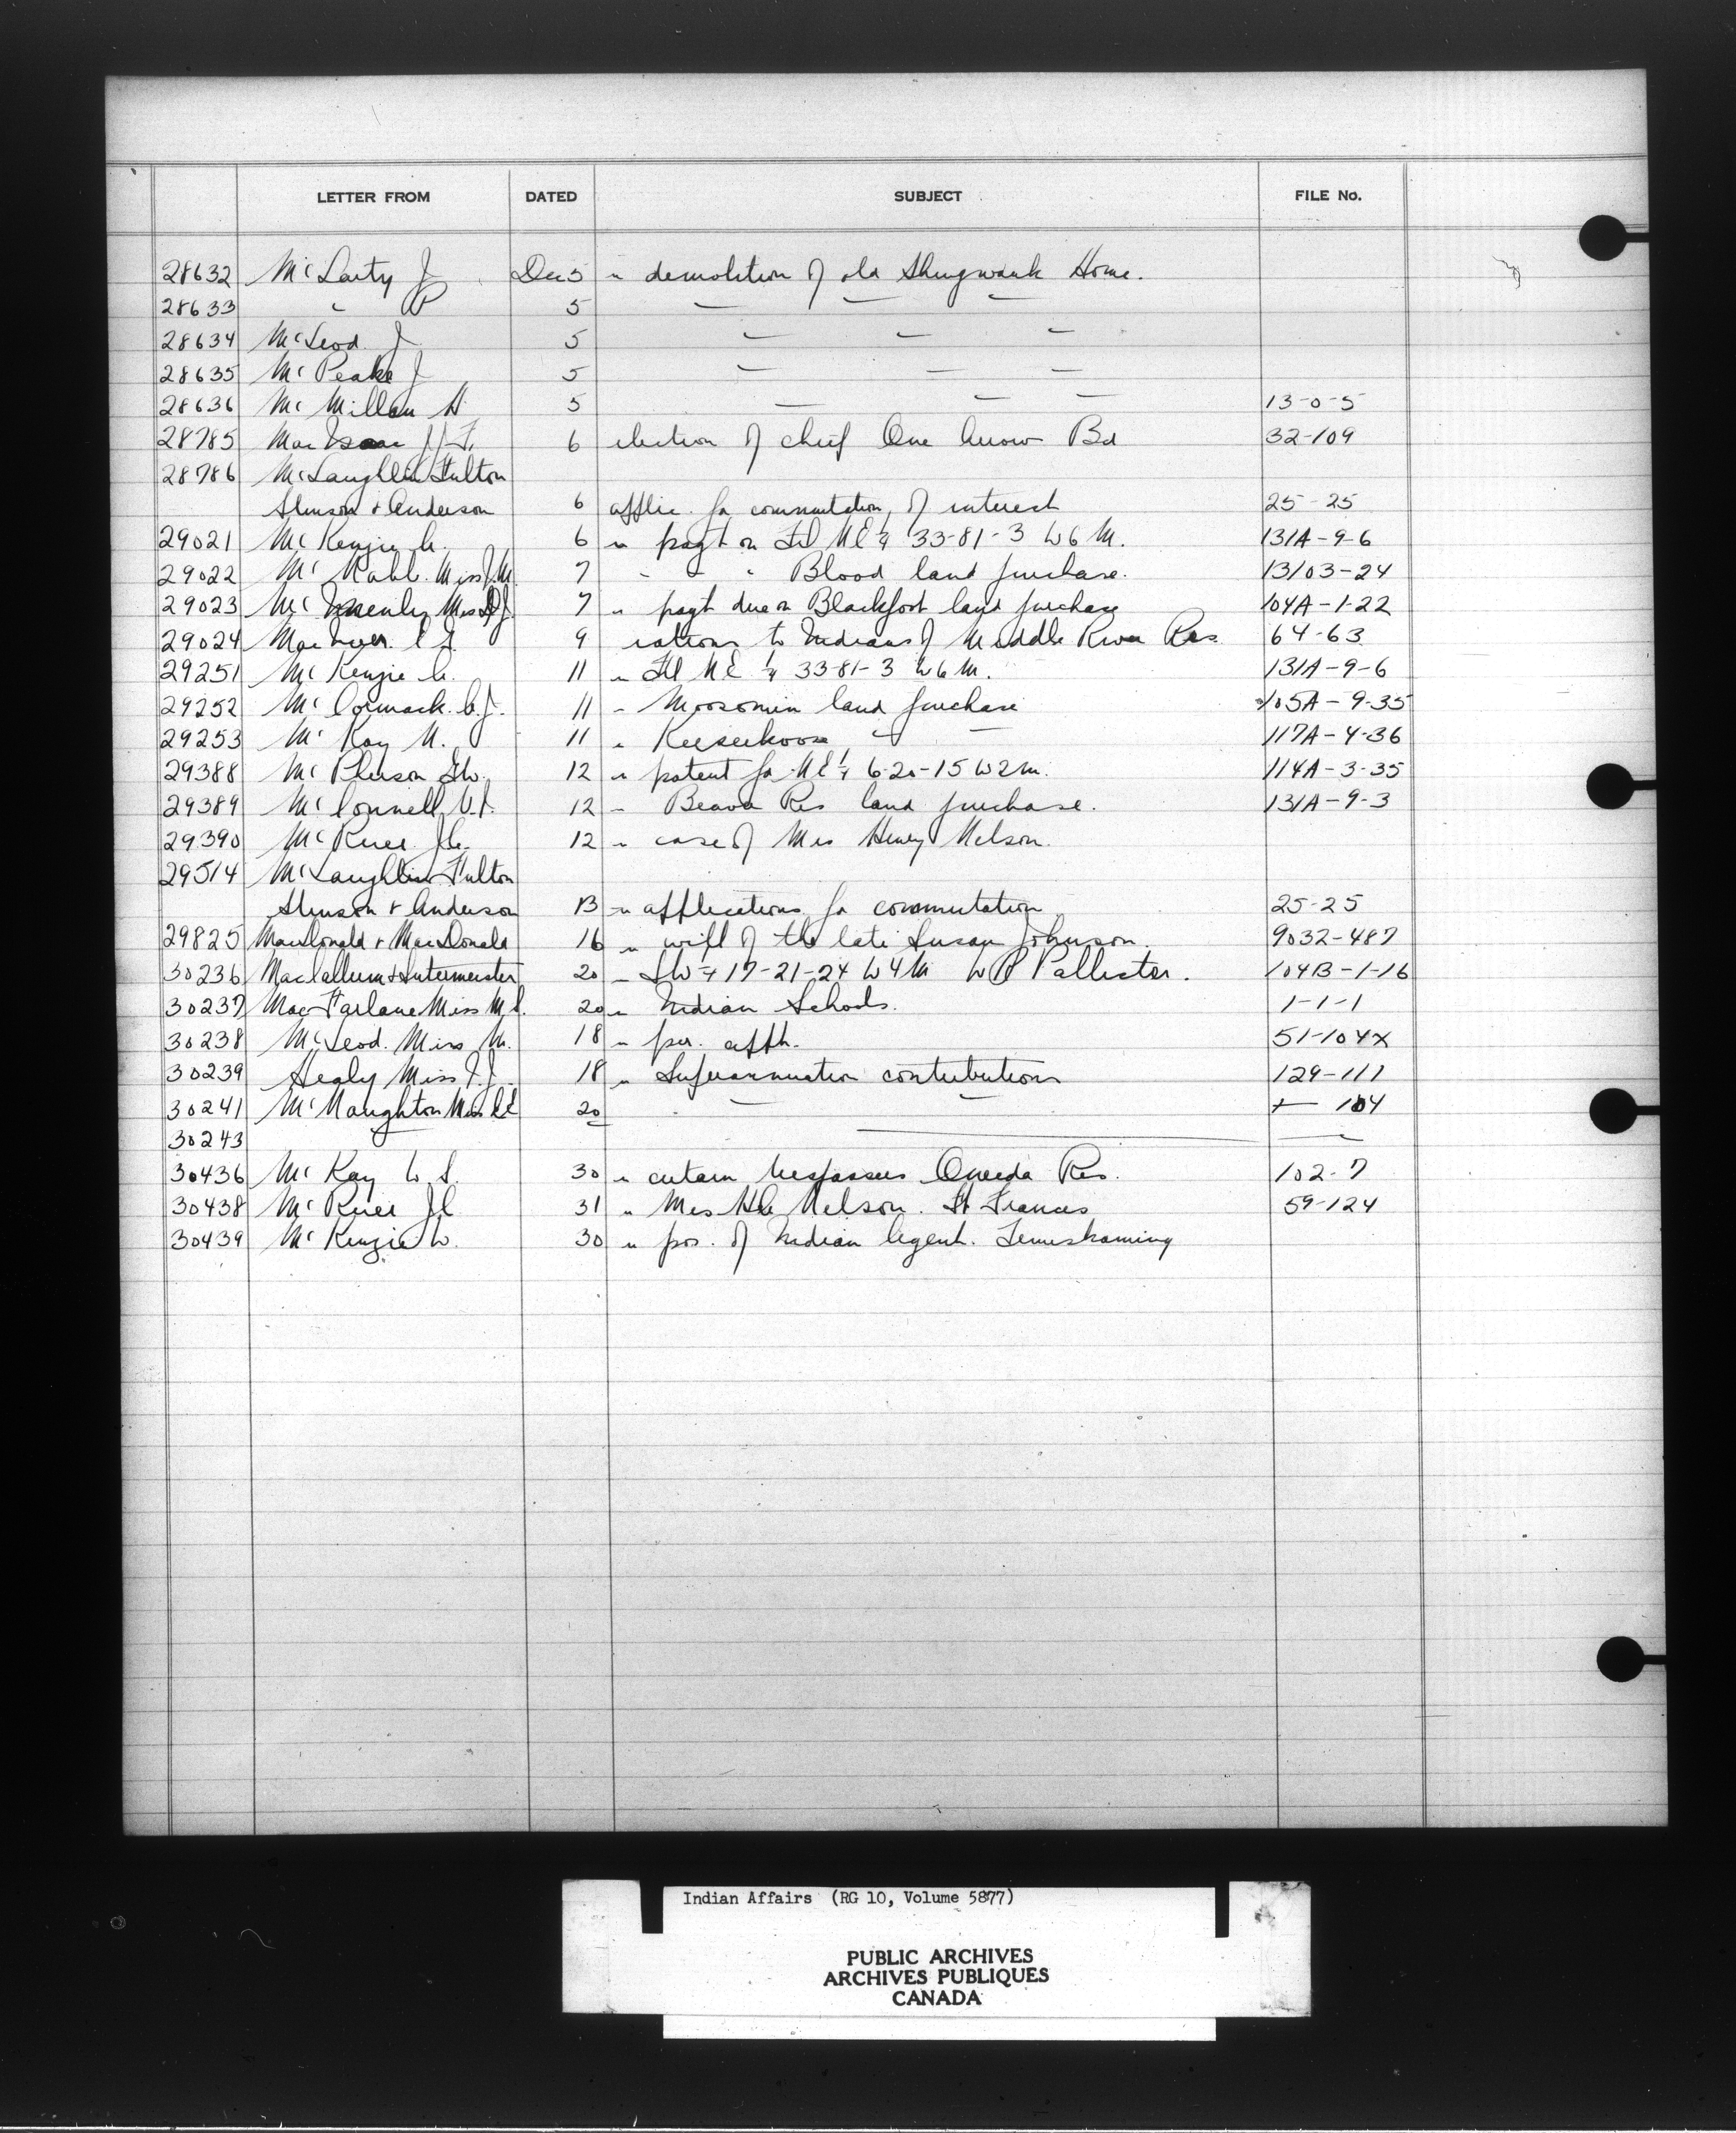 LETTER FROM DATED SUBJECT FILE No.
28632 McLarty J Dec 5 " demolition of old Shingwauk Home.
28633 " P 5 " " "
28634 McLeod J 5 " " "
28635 McPeake J 5 " " "
28636 McMillan H 5 " " " 13-0-5
28785 MacIsaac J.F. 6 election of chief One Arrow Bd 32-109
28786 McLaughlin Fulton
Stinson & Anderson 6 applic. for commutation of interest 25-25
29021 McKenzie A. 6 " payt on Fl NE¼ 33-81-3 W6M. 131A-9-6
29022 Mc Miss J.M. 7 " " " Blood land purchase. 13103-24
29023 Mc Miss D.J. 7 " payt due on Blackfoot land purchase 104A-1-22
29024 9 rations to Indians of Middle River Res 64-63
29251 McKenzie A. 11 " Fl NE ¼ 33-81-3 W6M. 131A-9-6
29252 McCormack C.J. 11 " Moosomin land purchase 105A-9-35
29253 McKay N. 11 " Keeseekoose " " 117A-4-36
29388 McPherson 12 " patent for NE¼ 6-20-15 W2M. 114A-3-35
29389 McConnell 12 " Beaver Res land purchase. 131A-9-3
29390 12 " case of Mrs Henry Nelson.
29514 McLaughlin Fulton
Stinson & Anderson 13 " applications for commutation 25-25
29825 MacDonald & MacDonald 16 " will of the late Susan Johnson. 9032-487
30236 MacCallum & Sutermeister 20 " SW¼ 17-21-24 W4M W P Pallister. 104B-1-16
30237 MacFarlane Miss M. 20 " Indian Schools. 1-1-1
30238 McLeod. Miss M. 18 " per. appln. 51-104x
30239 Healy Miss 18 " Superannuation contributions 129-111
30241 McNaughton Miss 20 " " " 104
30243
30436 McKay W S. 30 " certain trespassers Oneida Res. 102-7
30438 31 " Mrs Nelson. Ft Frances 59-124
30439 McKenzie W. 30 " pos. of Indian Agent. Temiskaming
Indian Affairs (RG 10, Volume 5877)
PUBLIC ARCHIVES
ARCHIVES PUBLIQUES
CANADA